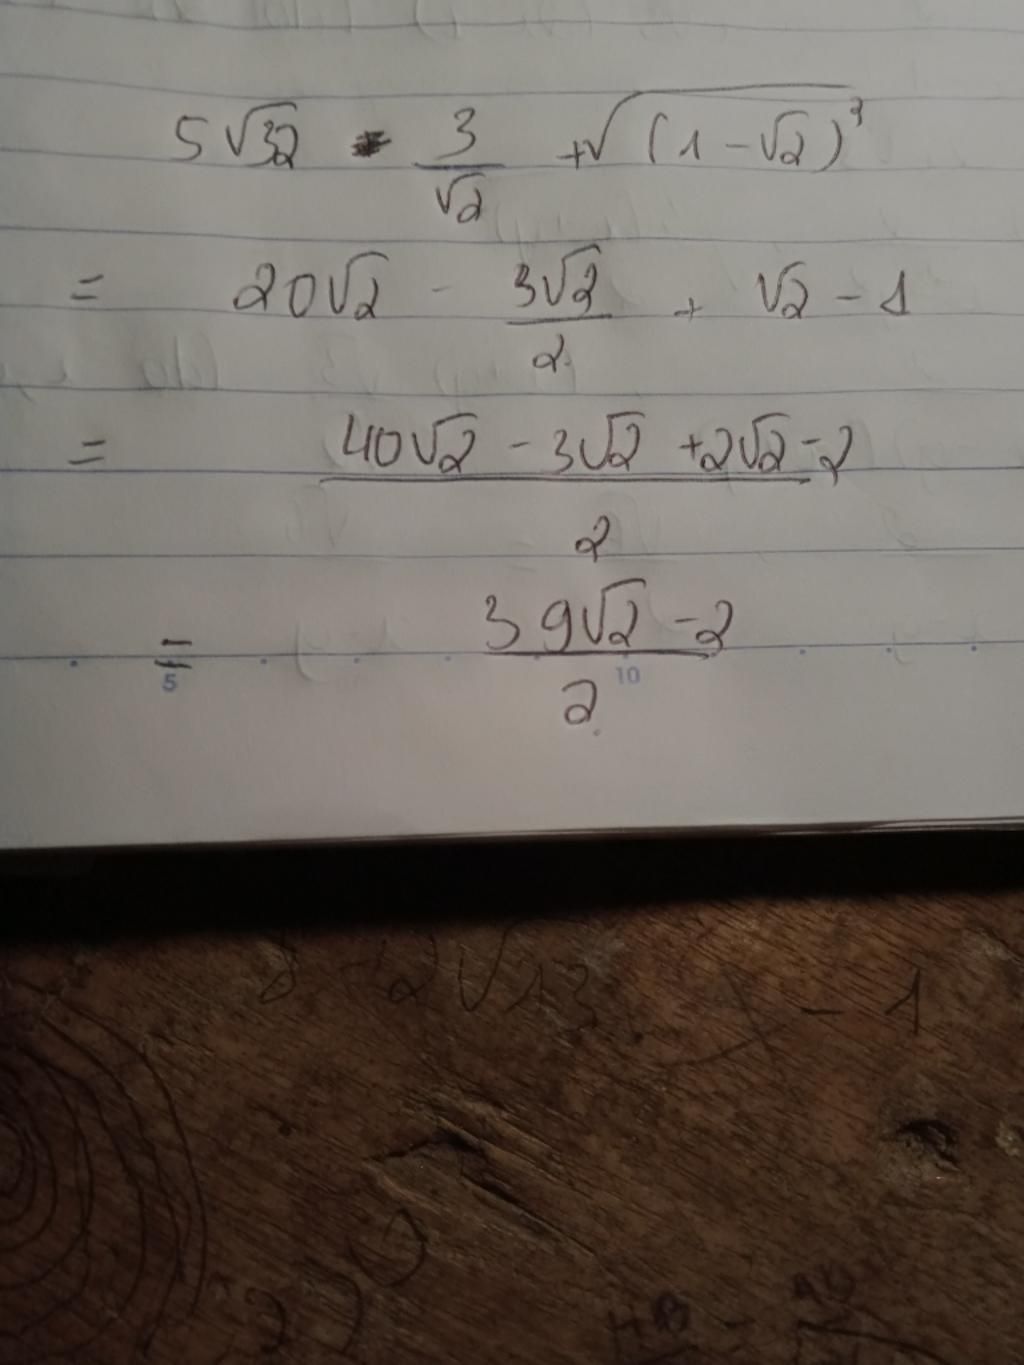 5√32 - 3/√2 + √(1 - √2)³
= 20√2 - 3√2/2 + √2 - 1
= (40√2 - 3√2 + 2√2 - 2)/2
= (39√2 - 2)/2
5 10
8 2√13 - 1